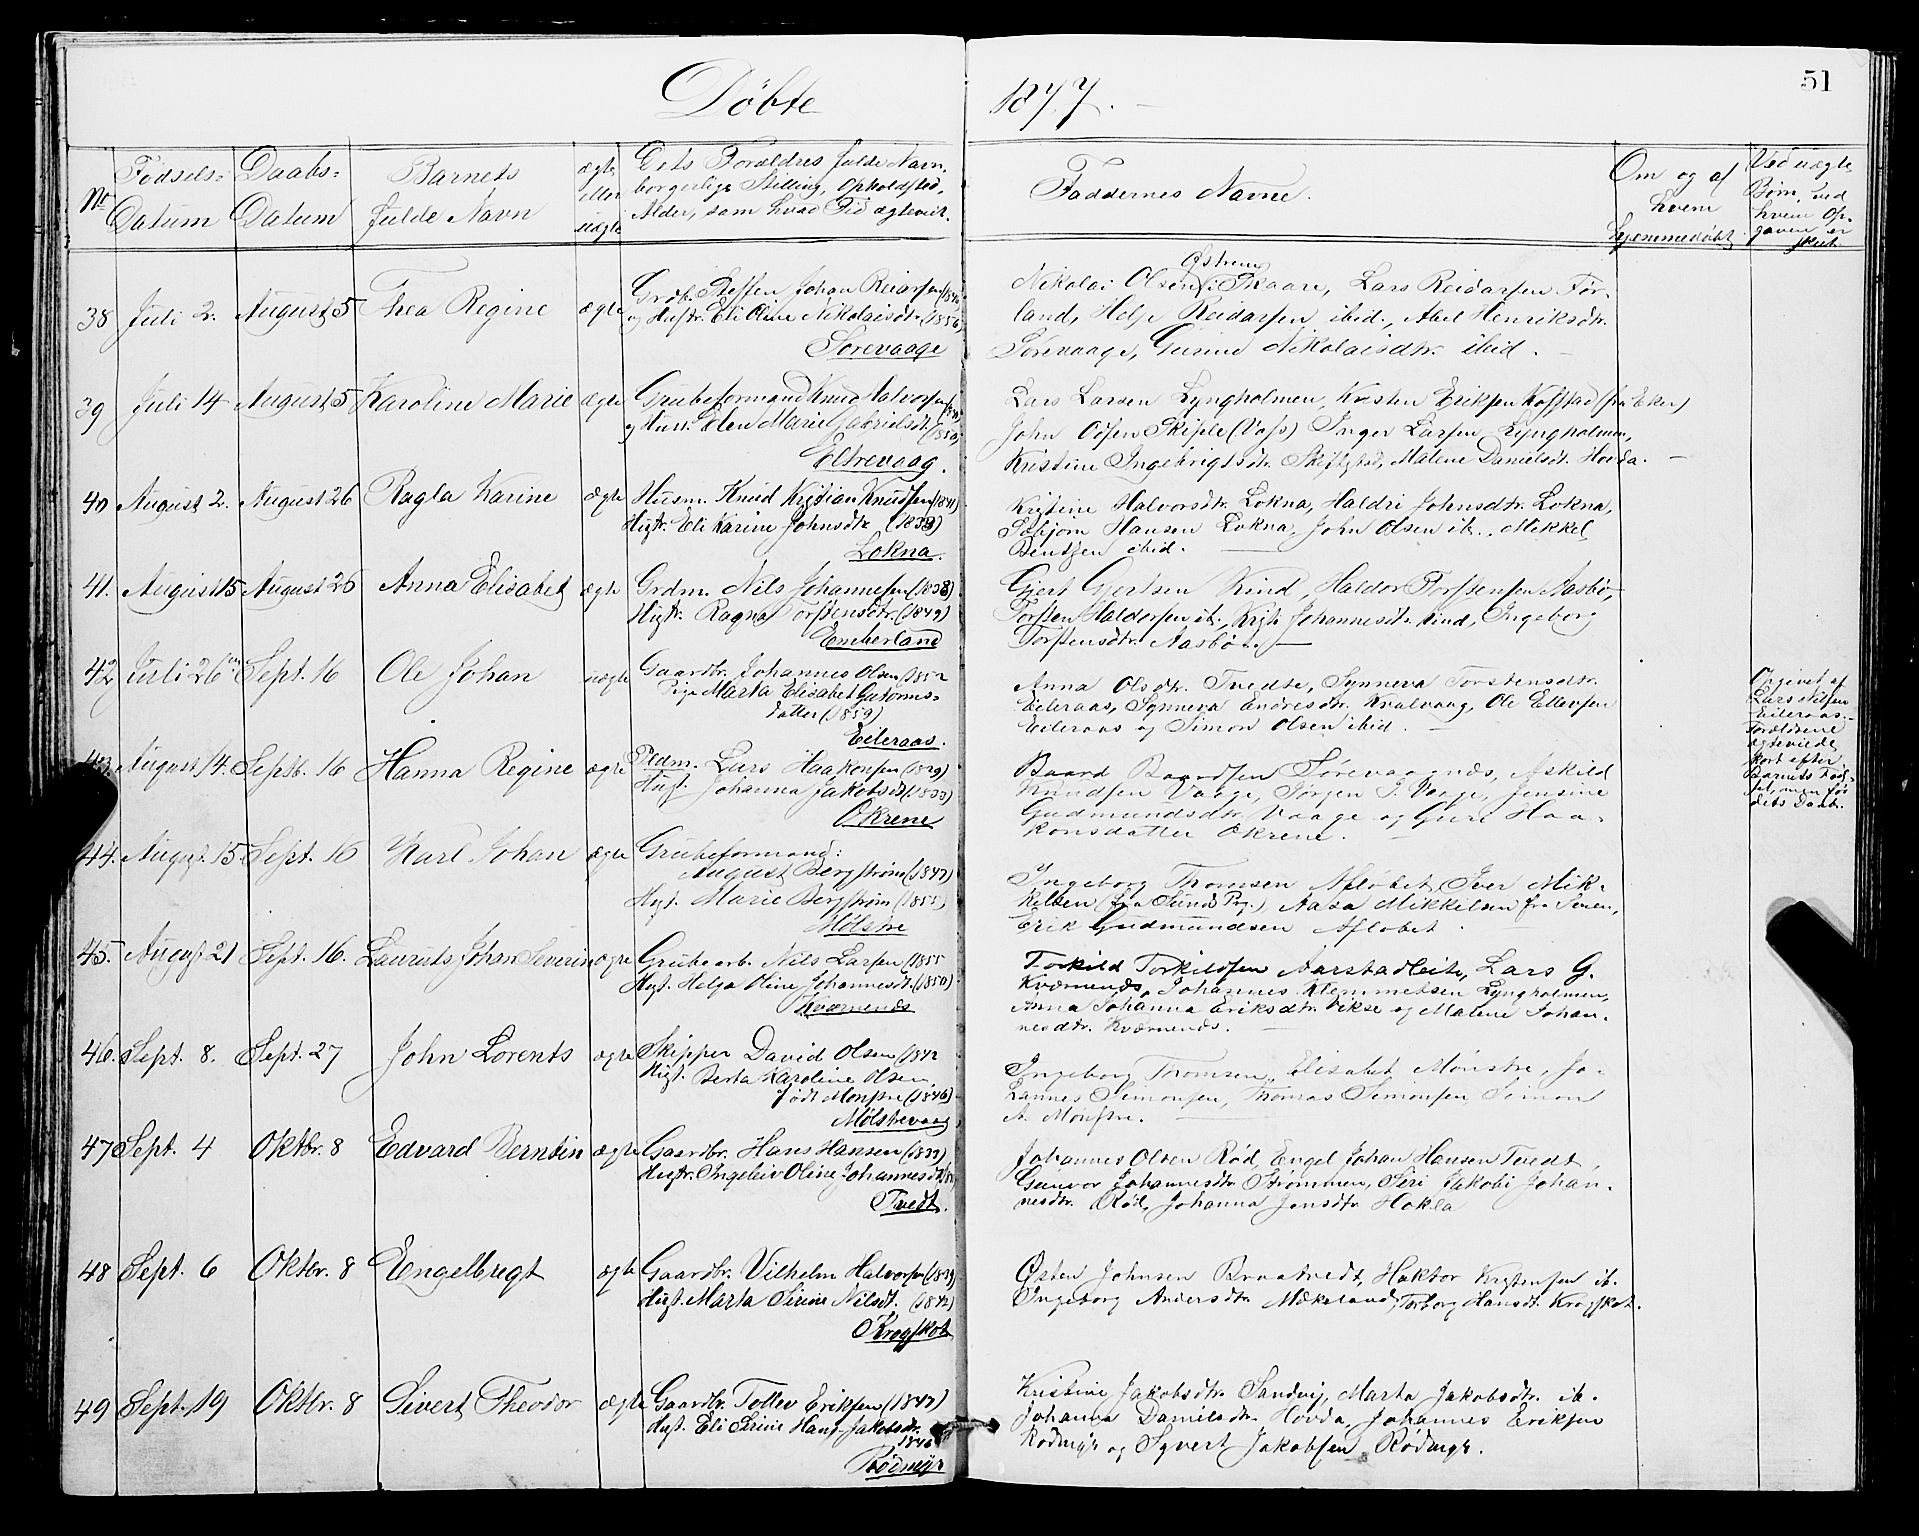 51
Döbte 1877.
No
Födsels-
Datum
Daabs-
Datum
Barnets
fulde Navn
ægte
eller
uægte
Dets Forældres fulde Navn,
borgerlige Stilling, Opholdsted,
Alder, samt hvad Tid ægteviet.
Faddernes Navne.
Om og af
hvem
hjemmedöbt
Ved uægte
Børn, ved
hvem Op-
gaven er
skeet
38 Juli 2. August 5 Thea Regine ægte
Grdb. Steffen Johan Reiarsen
og Hustr. Eli Oline Nikolaisdtr (1856)
Sørevaage
Østrem
Nikolai Olsen Skaare, Lars Reidarsen Før-
land, Helje Reidarsen ibid., Abel Henriksdtr.
Sørevaage, Gunne Nikolaisdtr. ibid.
39 Juli 14 August 5 Karoline Marie ægte
Grubeformand Knud Halvorsen
og Hust. Elen Marie Gabrielsdt. (1850)
Eltrevaag.
Lars Larsen Lyngholmen, Kristen Eriksen Kofstad (fra Eker)
John Odsen Skiple (Voss) Inger Larsen Lyngholmen,
Kristine Ingebrigtsdtr. Malene Danielsdt. Hovda.
40 August 2. August 26 Ragla Karine ægte
Husm. Knud Kristian Knudsen (1841)
Hustr. Eli Karine Johnsdtr (1838)
Lokna.
Kristine Halvorsdtr. Lokna, Haldri Johnsdtr. Lokna,
Hansen Lokna, John Olsen ib., Mikkel
Bentsen ibid.
41. August 15 August 26 Anna Elisabet ægte
Grdm. Nils Johannesen (1838)
Hustr. Ragna Torstensdtr. (1849)
Emberland
Gjert Gjertsen Kind, Haldor Torstensen Aasbö,
Torsten Haldorsen ib., Johannesdt. Kind, Ingeborg
Torstensdtr. Aasbö.
42 Juli 26 Sept. 16 Ole Johan uægte
Gaardbr. Johannes Olsen 1852
Pige Marta Elisabet Gutorms-
datter (1859)
Eileraas.
Anna Olsdtr. Tvedte, Synneva Torstensdtr.
Eileraas, Synneva Endresdtr. Kvalvaag, Ole Ellevsen
Eileraas og Simon Olsen ibid.
Opgivet af
Lars Nilsen
Eileraas.
Forældrene
ægteviede
kort efter
Barnets Föd-
sel, men för
dets Daab.
43. August 14. Septb. 16 Hanna Regine ægte
Pldm. Lars Haakonsen (1829)
Hust. Johanna Jakobsdt. (1833)
Økrene
Baard Baardsen Sørevaagnæs, Askild
Knudsen Vaage, Jørgen J. Vaage, Jensine
Gudmundsdtr. Vaage og Guri Haa-
konsdatter Økrene.
44. August. 15 Sept. 16 Karl Johan ægte
Grubeformand:
August Bergström (1847)
Hust. Marie Bergström (1855)
Mølstre
Ingeborg Thomsen Aflöbet, Iver Mik-
kelsen (fra Sunds Prg.), Aasa Mikkelsen fra
Erik Gudmundsen Aflöbet.
45. August. 21 Sept. 16. Laurits Johan Severin ægte
Grubearb. Nils Larsen (1855
Hust. Helga Oline Johannesdt. (1850)
Kværnenæs
Torkild Torkildsen Aarstadleite, Lars G.
Kværnenæs, Johannes Klemmetsen Lyngholmen,
Anna Johanna Eriksdtr. Vikse og Malene Johan-
nesdtr. Kværnenæs.
46. Sept. 8. Sept. 27 John Lorents ægte
Skipper David Olsen (1842
Hust. Berta Karoline Olsen,
född Monstre (1846)
Mølstrevaag
Ingeborg Thomsen, Elisabet Mönstre, Jo-
hannes Simonsen, Thomas Simonsen, Simon
A. Monstre.
47 Sept. 4 Oktbr. 8 Edvard Berntin ægte
Gaardbr. Hans Hansen (1839)
Hustr. Ingeleiv Oline Johannesdt
Tvedt.
Johannes Olsen Röd, Engel Johan Hansen Tvedt,
Gunvor Johannesdtr. Strömmen, Siri Jakobi Johan-
nesdtr. Röd, Johanna Jonsdtr. Hakla
48 Sept. 6 Oktbr. 8 Engelbregt ægte
Gaardbr. Vilhelm Halvorsen (1839)
Hust. Marta Sirine Nilsdt. (1842)
Krogskot
Östen Johnsen Braatvedt, Haktor Kristensen ib.
Ingeborg Andersdtr. Mækeland, Torborg Hansdt. Krogskot.
49 Sept. 19 Oktbr. 8 Sivert Theodor ægte
Gaardbr. Tollev Eriksen (1847)
Hust. Eli Sirine Hans Jakobsdtr.
1846
Rödmyr
Kristine Jakobsdtr. Sandvig, Marta Jakobsdtr. ib.
Johanna Danielsdtr. Hovda, Johannes Eriksen
Rödmyr og Syvert Jakobsen Rödmyr.